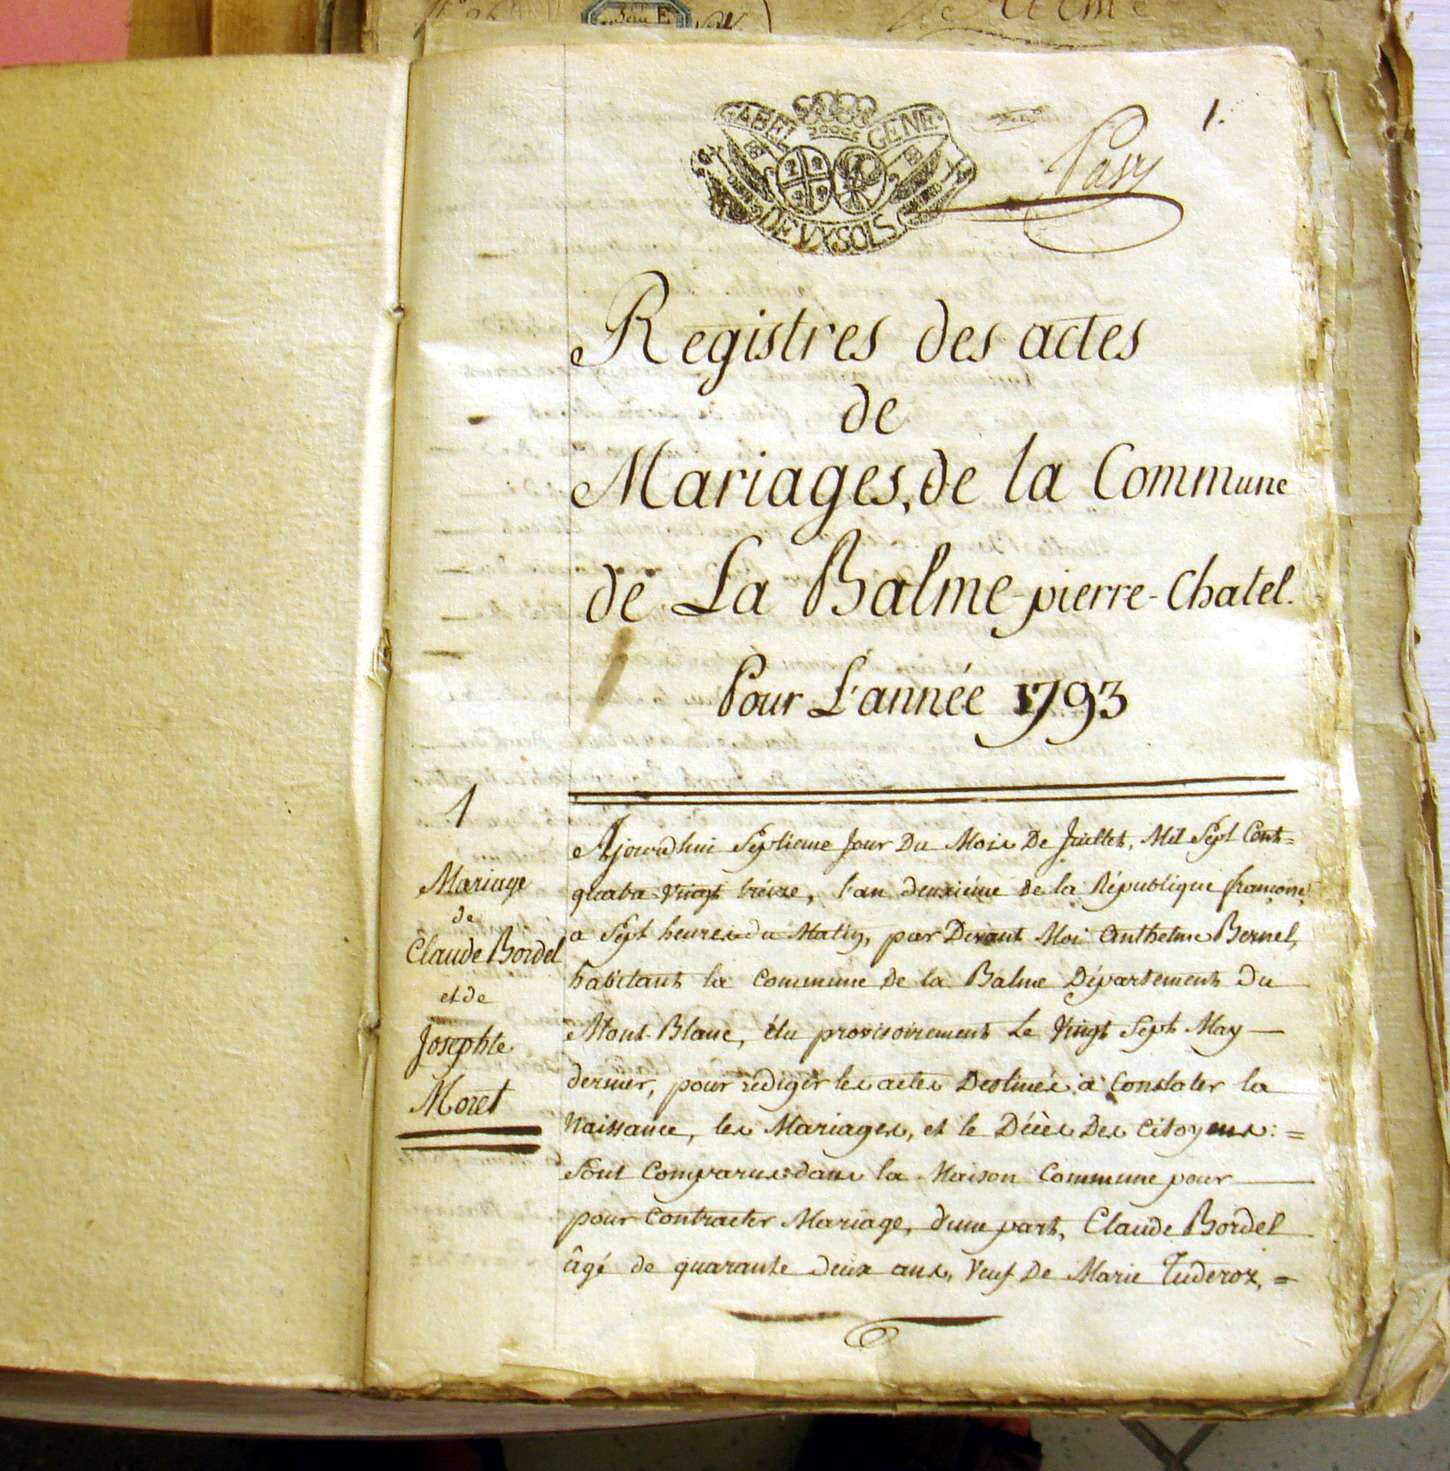 1.
GABEL GENE.
DEUX SOLS
Registres des actes
de
Mariages, de la Commune
de La Balme-pierre-Chatel.
Pour L'année 1793
1
Mariage
de
Claude Bordel
et de
Josephte
Moret
Ajourdhui Septieme Jour Du Mois De Juillet, Mil Sept Cent=
quatre Vingt treize, l'an deuxiéme de la République françoise
a Sept heures du Matin, par Devant Moi Anthelme Bernel,
habitant la Commune De la Balme Département Du
Mont-Blanc, élu provisoirement Le Vingt Sept May —
dernier, pour rédiger les actes Destinés à Constater la
Naissance, les Mariages, et le Décès Des Citoyens: =
Sont Comparus dans la Maison Commune pour —
pour Contracter Mariage, d'une part, Claude Bordel
âgé de quarante deux ans, Veuf De Marie =